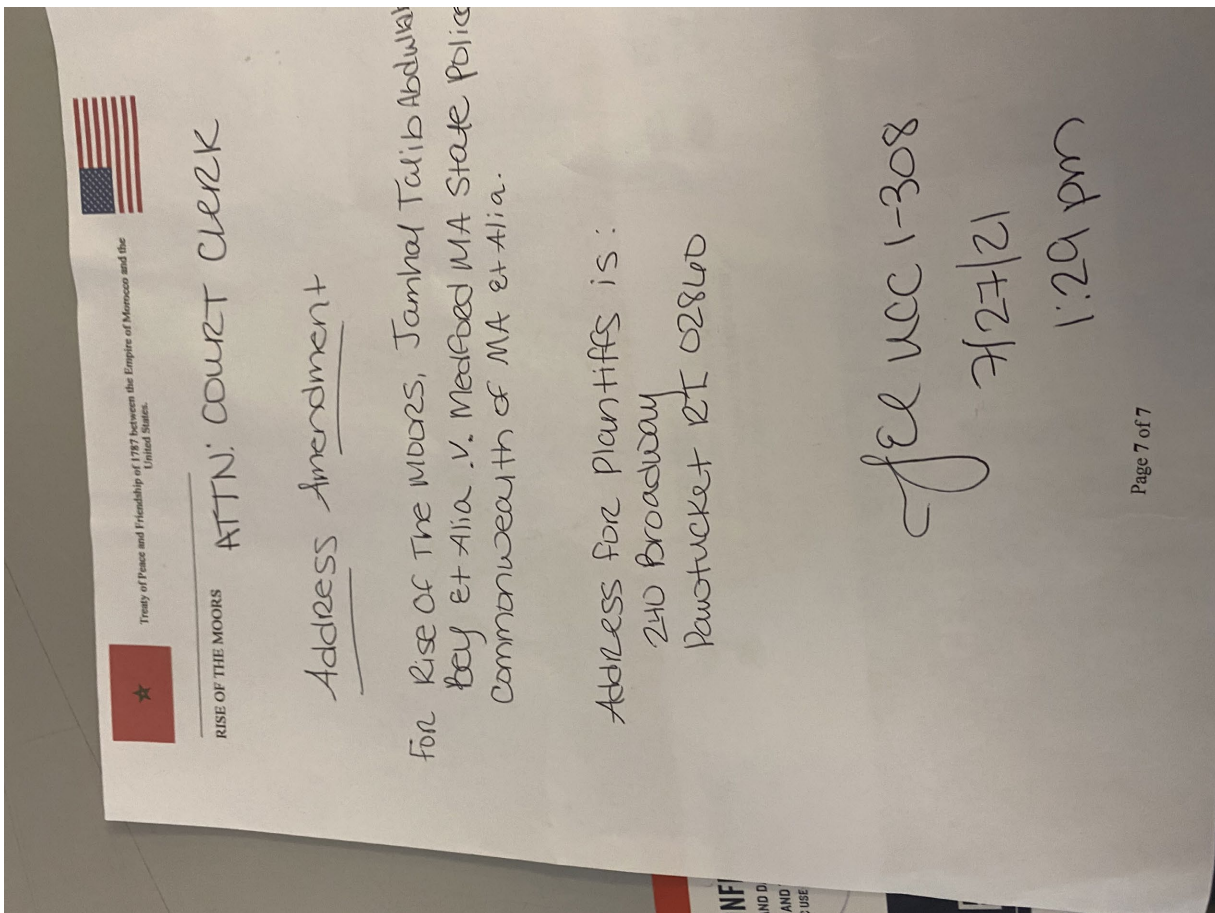 Treaty of Peace and Friendship of 1787 between the Empire of Morocco and the
United States.
RISE OF THE MOORS
ATTN: COURT CLERK
Address Amendment
FOR RISE OF THE MOORS, Jamhal Talib Abdullah
Bey Et Alia .v. Medford MA State Police
Commonwealth of MA Et Alia.
Address for Plantiffs is:
240 Broadway
Pawtucket RI 02860
UCC 1-308
7/27/21
1:29 pm
Page 7 of 7
NF
AND D
AND
USE